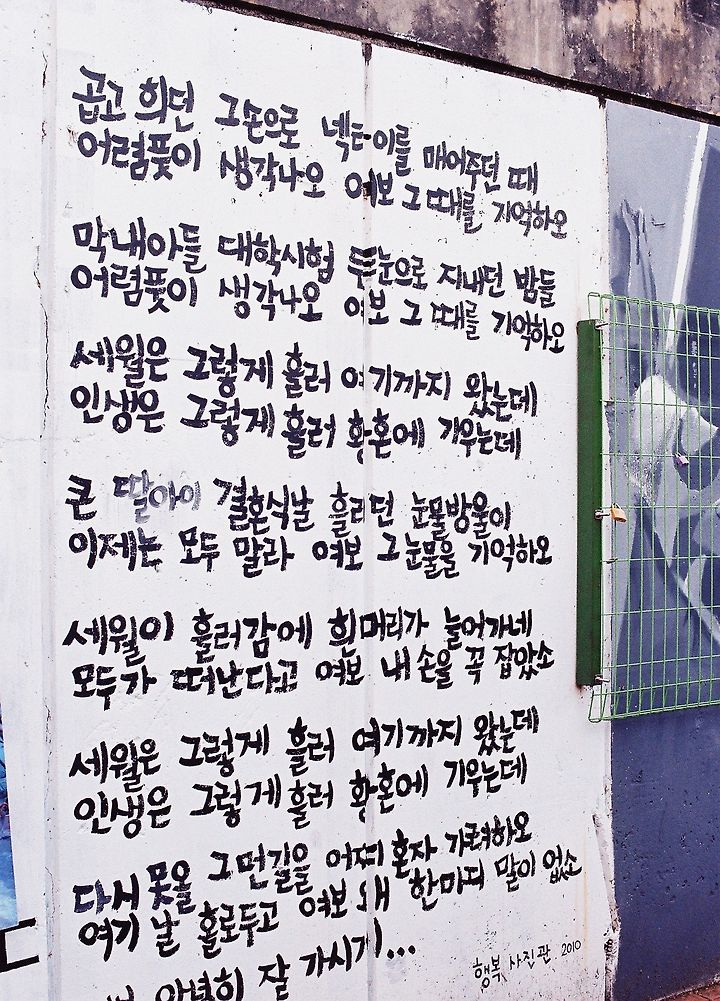 곱고 희던 그손으로 넥타이를 매어주던 때
어렴풋이 생각나오 여보 그때를 기억하오
막내아들 대학시험 뜬눈으로 지내던 밤들
어렴풋이 생각나오 여보 그 때를 기억하오
세월은 그렇게 흘러 여기까지 왔는데
인생은 그렇게 흘러 황혼에 기우는데
큰 딸아이 결혼식날 흘리던 눈물방울이
이제는 모두 말라 여보 그눈물을 기억하오
세월이 흘러감에 흰머리가 늘어가네
모두가 떠난다고 여보 내 손을 꼭 잡았소
세월은 그렇게 흘러 여기까지 왔는데
인생은 그렇게 흘러 황혼에 기우는데
다시못올 그먼길을 어찌 혼자 가려하오
여기 날 홀로두고 여보 왜 한마디 말이 없소
안녕히 잘 가시게...
행복 사진관 2010